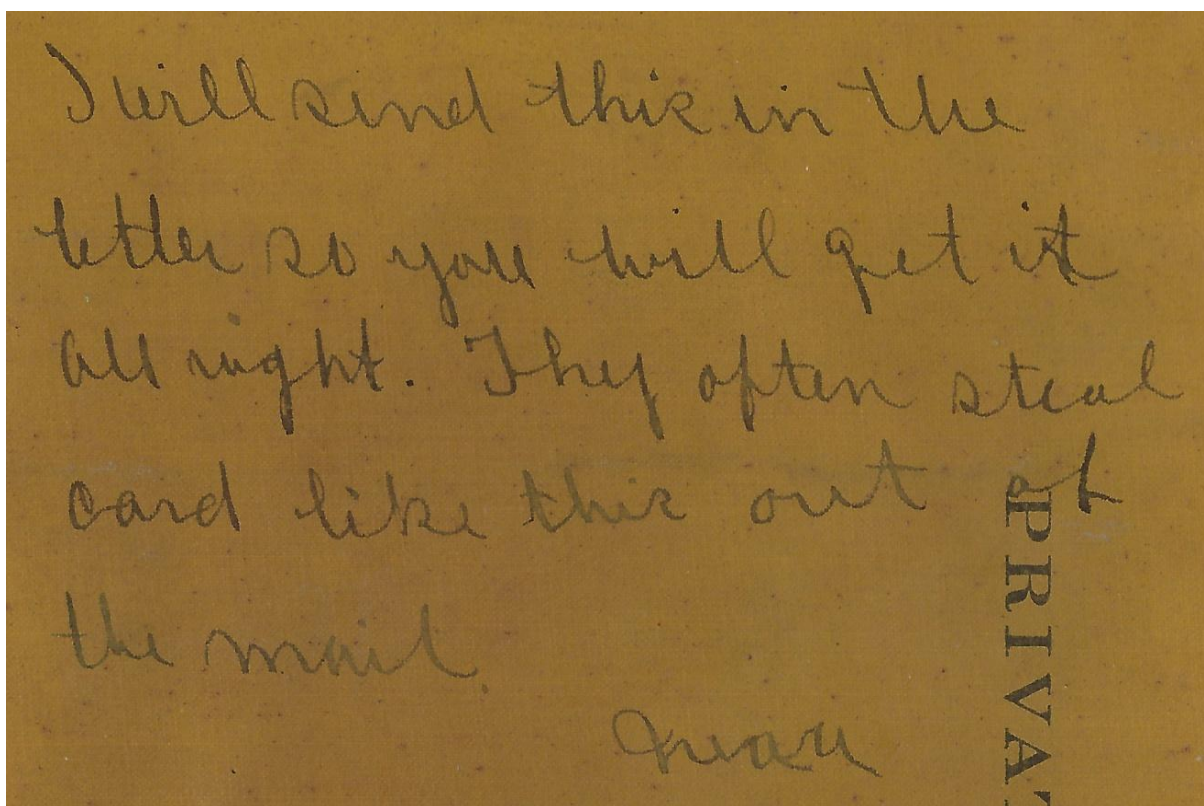 I will send this in the
letter so you will get it
all right. They often steal
card like this out of
the mail.
PRIVA